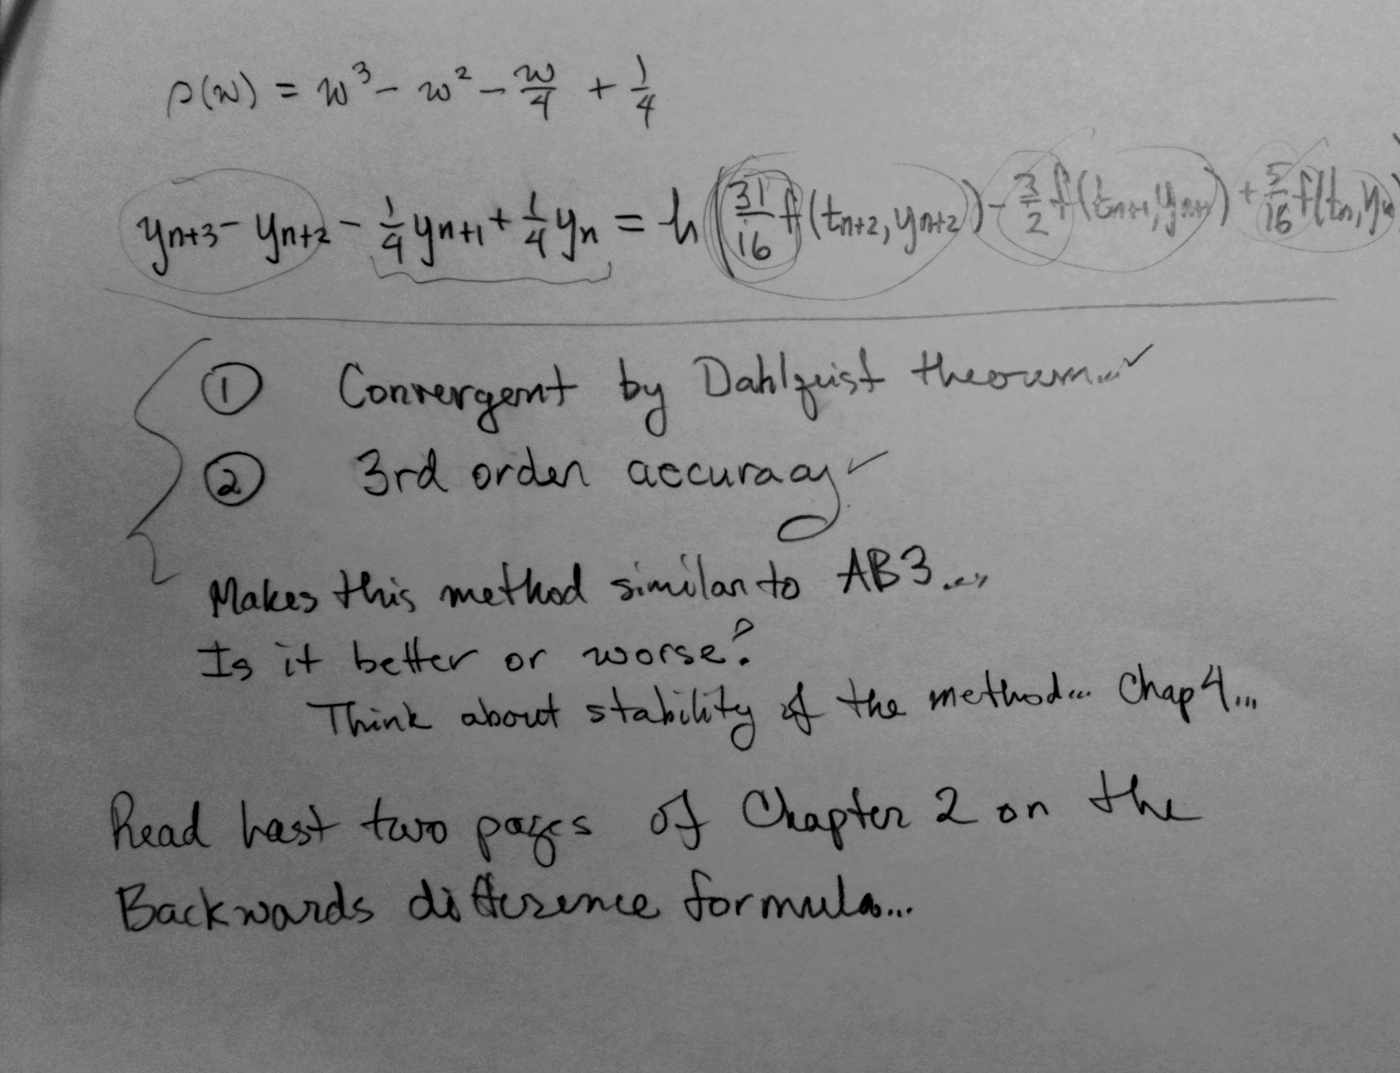 ρ(w) = w³ - w² - w/4 + 1/4
yn+3 - yn+2 - 1/4 yn+1 + 1/4 yn = h (31/16 f(tn+2, yn+2) - 3/2 f(tn+1, yn+1) + 5/16 f(tn, yn)
① Convergent by Dahlquist theorem... ✓
② 3rd order accuracy ✓
Makes this method similar to AB3...
Is it better or worse?
Think about stability of the method... Chap 4...
Read last two pages of Chapter 2 on the
Backwards difference formula...